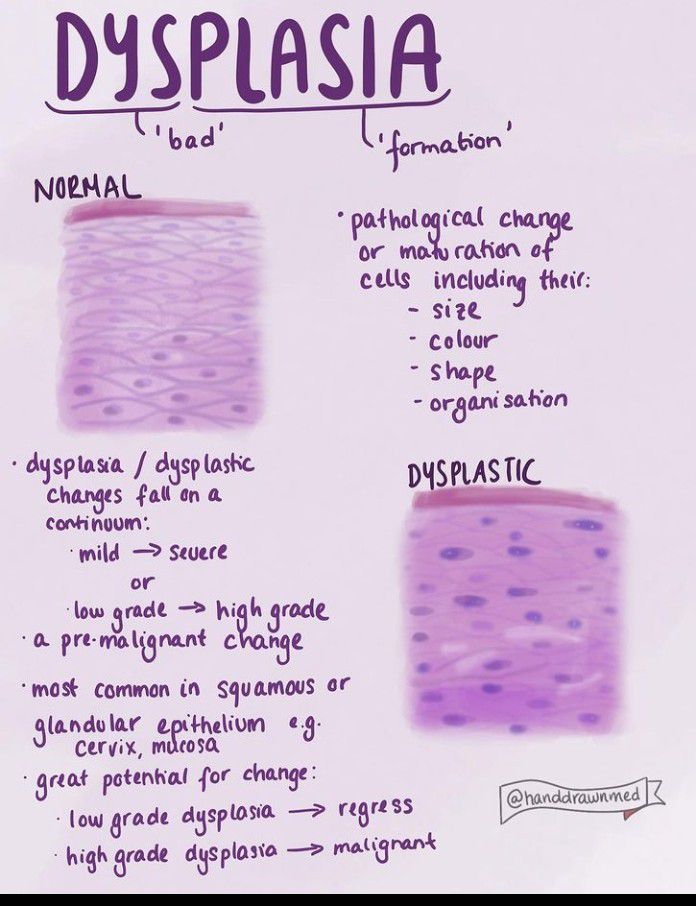 DYSPLASIA
'bad'
'formation'
NORMAL
• pathological change
or maturation of
cells including their:
- size
- colour
- shape
- organisation
• dysplasia / dysplastic
changes fall on a
continuum:
• mild → severe
or
• low grade → high grade
• a pre-malignant change
• most common in squamous or
glandular epithelium e.g.
cervix, mucosa
• great potential for change:
• low grade dysplasia → regress
• high grade dysplasia → malignant
DYSPLASTIC
@handdrawnmed